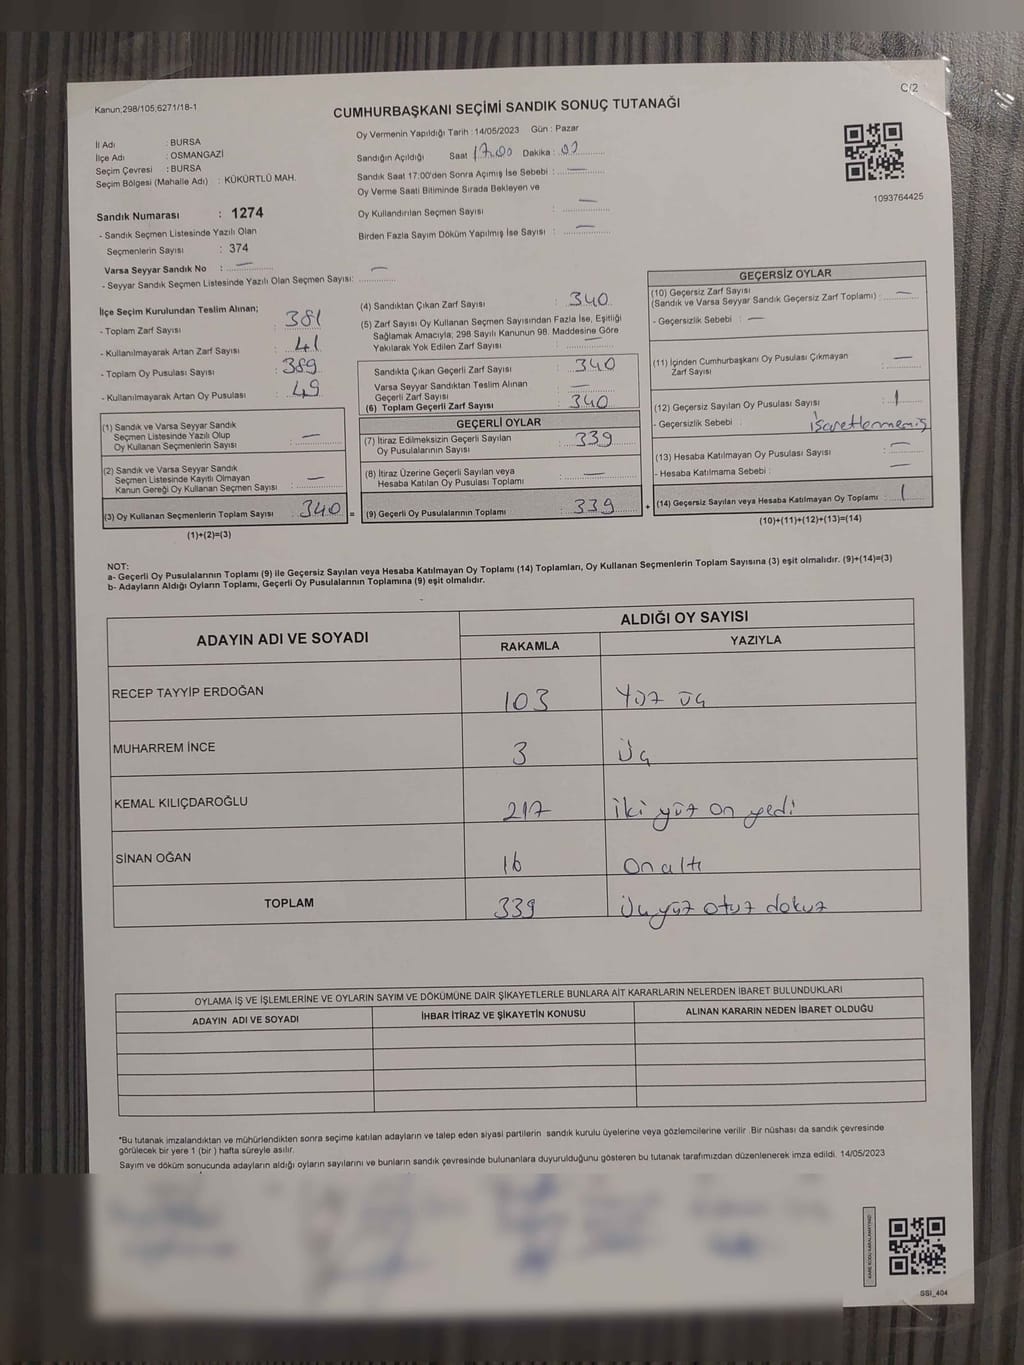 Kanun;298/105,6271/18-1
C/2
CUMHURBAŞKANI SEÇİMİ SANDIK SONUÇ TUTANAĞI
İl Adı : BURSA
İlçe Adı : OSMANGAZİ
Seçim Çevresi : BURSA
Seçim Bölgesi (Mahalle Adı) : KÜKÜRTLÜ MAH.
Sandık Numarası : 1274
- Sandık Seçmen Listesinde Yazılı Olan
Seçmenlerin Sayısı : 374
Varsa Seyyar Sandık No : —
- Seyyar Sandık Seçmen Listesinde Yazılı Olan Seçmen Sayısı: —
Oy Vermenin Yapıldığı Tarih : 14/05/2023 Gün : Pazar
Sandığın Açıldığı Saat 17.00 Dakika :
Sandık Saat 17:00'den Sonra Açımış İse Sebebi : —
Oy Verme Saati Bitiminde Sırada Bekleyen ve
Oy Kullandırılan Seçmen Sayısı : —
Birden Fazla Sayım Döküm Yapılmış İse Sayısı : —
1093764425
İlçe Seçim Kurulundan Teslim Alınan;
- Toplam Zarf Sayısı : 381
- Kullanılmayarak Artan Zarf Sayısı : 41
- Toplam Oy Pusulası Sayısı : 389
- Kullanılmayarak Artan Oy Pusulası : 49
(1) Sandık ve Varsa Seyyar Sandık
Seçmen Listesinde Yazılı Olup
Oy Kullanan Seçmenlerin Sayısı : —
(2) Sandık ve Varsa Seyyar Sandık
Seçmen Listesinde Kayıtlı Olmayan
Kanun Gereği Oy Kullanan Seçmen Sayısı : —
(3) Oy Kullanan Seçmenlerin Toplam Sayısı : 340 =
(1)+(2)=(3)
(4) Sandıktan Çıkan Zarf Sayısı : 340
(5) Zarf Sayısı Oy Kullanan Seçmen Sayısından Fazla İse, Eşitliği
Sağlamak Amacıyla; 298 Sayılı Kanunun 98. Maddesine Göre
Yakılarak Yok Edilen Zarf Sayısı : —
Sandıkta Çıkan Geçerli Zarf Sayısı : 340
Varsa Seyyar Sandıktan Teslim Alınan
Geçerli Zarf Sayısı : —
(6) Toplam Geçerli Zarf Sayısı : 340
GEÇERLİ OYLAR
(7) İtiraz Edilmeksizin Geçerli Sayılan
Oy Pusulalarının Sayısı : 339
(8) İtiraz Üzerine Geçerli Sayılan veya
Hesaba Katılan Oy Pusulası Toplamı : —
(9) Geçerli Oy Pusulalarının Toplamı : 339 +
GEÇERSİZ OYLAR
(10) Geçersiz Zarf Sayısı
(Sandık ve Varsa Seyyar Sandık Geçersiz Zarf Toplamı) : —
- Geçersizlik Sebebi : —
(11) İçinden Cumhurbaşkanı Oy Pusulası Çıkmayan
Zarf Sayısı : —
(12) Geçersiz Sayılan Oy Pusulası Sayısı : 1
- Geçersizlik Sebebi : İşaretlenmemiş
(13) Hesaba Katılmayan Oy Pusulası Sayısı : —
- Hesaba Katılmama Sebebi : —
(14) Geçersiz Sayılan veya Hesaba Katılmayan Oy Toplamı : 1
(10)+(11)+(12)+(13)=(14)
NOT:
a- Geçerli Oy Pusulalarının Toplamı (9) ile Geçersiz Sayılan veya Hesaba Katılmayan Oy Toplamı (14) Toplamları, Oy Kullanan Seçmenlerin Toplam Sayısına (3) eşit olmalıdır. (9)+(14)=(3)
b- Adayların Aldığı Oyların Toplamı, Geçerli Oy Pusulalarının Toplamına (9) eşit olmalıdır.
ADAYIN ADI VE SOYADI
ALDIĞI OY SAYISI
RAKAMLA YAZIYLA
RECEP TAYYİP ERDOĞAN 103 Yüz üç
MUHARREM İNCE 3 Üç
KEMAL KILIÇDAROĞLU 217 İki yüz on yedi
SİNAN OĞAN 16 On altı
TOPLAM 339 Üç yüz otuz dokuz
OYLAMA İŞ VE İŞLEMLERİNE VE OYLARIN SAYIM VE DÖKÜMÜNE DAİR ŞİKAYETLERLE BUNLARA AİT KARARLARIN NELERDEN İBARET BULUNDUKLARI
ADAYIN ADI VE SOYADI İHBAR İTİRAZ VE ŞİKAYETİN KONUSU ALINAN KARARIN NEDEN İBARET OLDUĞU
*Bu tutanak imzalandıktan ve mühürlendikten sonra seçime katılan adayların ve talep eden siyasi partilerin sandık kurulu üyelerine veya gözlemcilerine verilir .Bir nüshası da sandık çevresinde
görülecek bir yere 1 (bir ) hafta süreyle asılır.
Sayım ve döküm sonucunda adayların aldığı oyların sayılarını ve bunların sandık çevresinde bulunanlara duyurulduğunu gösteren bu tutanak tarafımızdan düzenlenerek imza edildi. 14/05/2023
KARE KODU KARALAMAYINIZ!
SSI_404